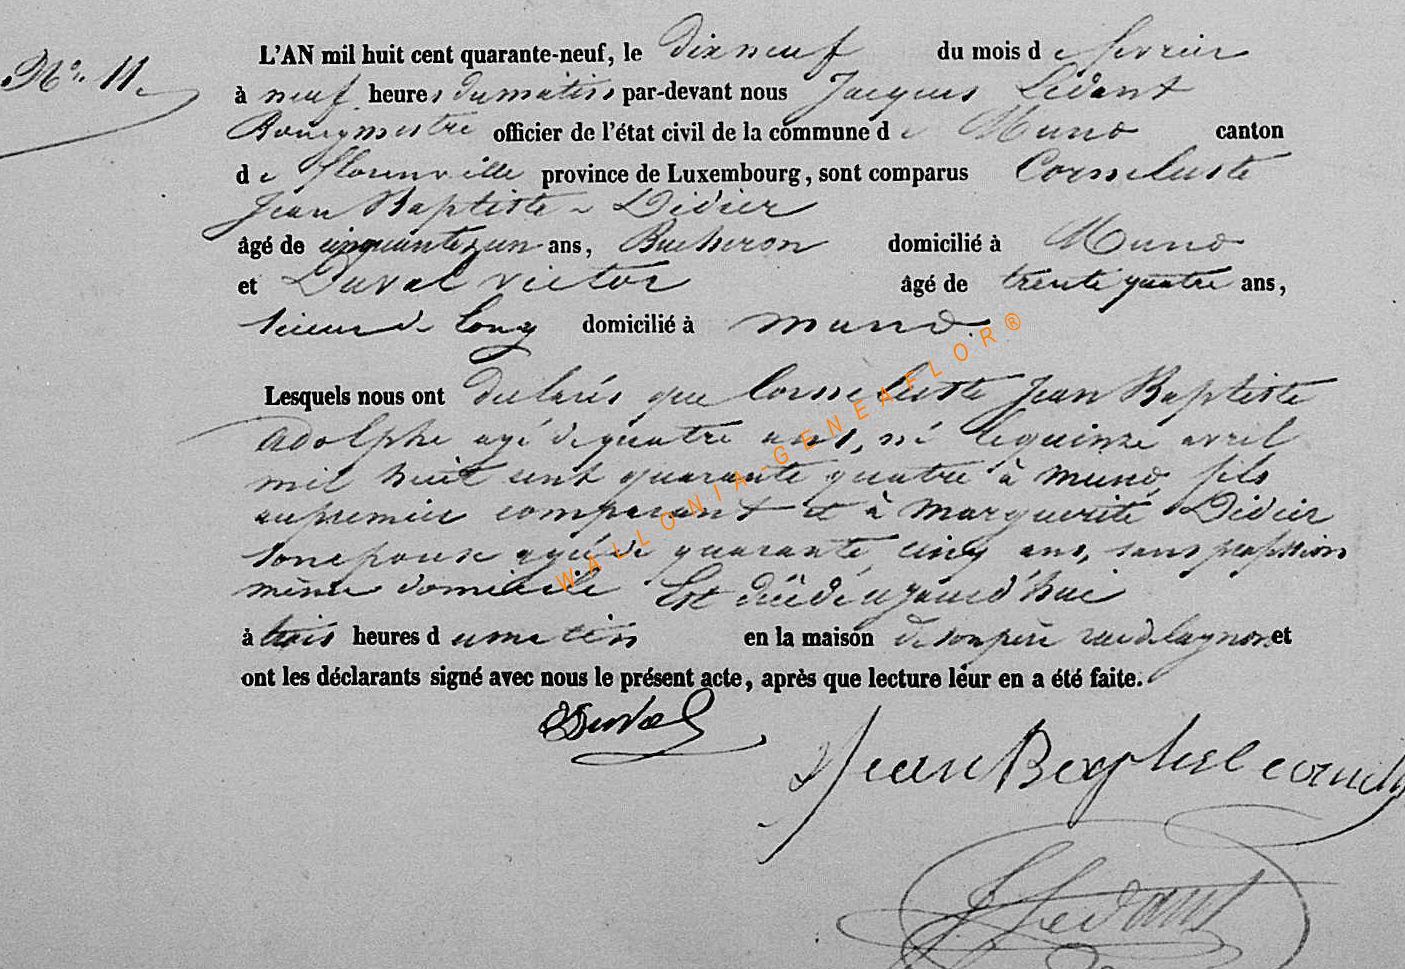 N° 11.
L'AN mil huit cent quarante-neuf, le dix neuf du mois de fevrier
à neuf heures du matin par-devant nous Jacques Ledant
Bourgmestre officier de l'état civil de la commune de Muno canton
de florenville province de Luxembourg, sont comparus Corneluste
Jean Baptiste - Didier
âgé de cinquante un ans, Bucheron domicilié à Muno
et Duval victor âgé de trente quatre ans,
scieur de long domicilié à muno.
Lesquels nous ont declarés que Corneluste Jean Baptiste
adolphe agé de quatre ans, né le quinze avril
mil huit cent quarante quatre à muno fils
au premier comparant et à marguerite Didier
son epouse agée de quarante cinq ans, sans profession
même domicile Est décédé aujourd'hui
à trois heures du matin en la maison de son père rue de lagnon et
ont les déclarants signé avec nous le présent acte, après que lecture léur en a été faite.
Duval
Jean Baptiste
J Ledant
WALLONIA-GENEAFLOR®